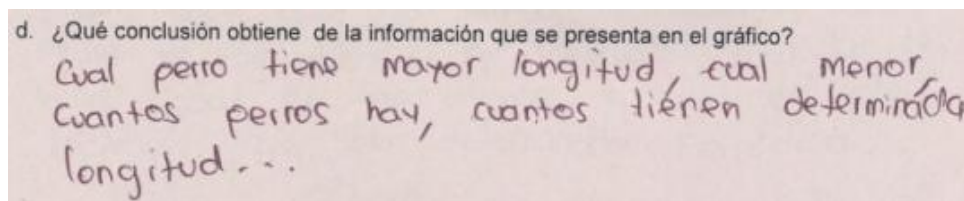 d. ¿Qué conclusión obtiene de la información que se presenta en el gráfico?
Cual perro tiene mayor longitud, cual menor,
Cuantos perros hay, cuantos tiénen determináda
longitud...